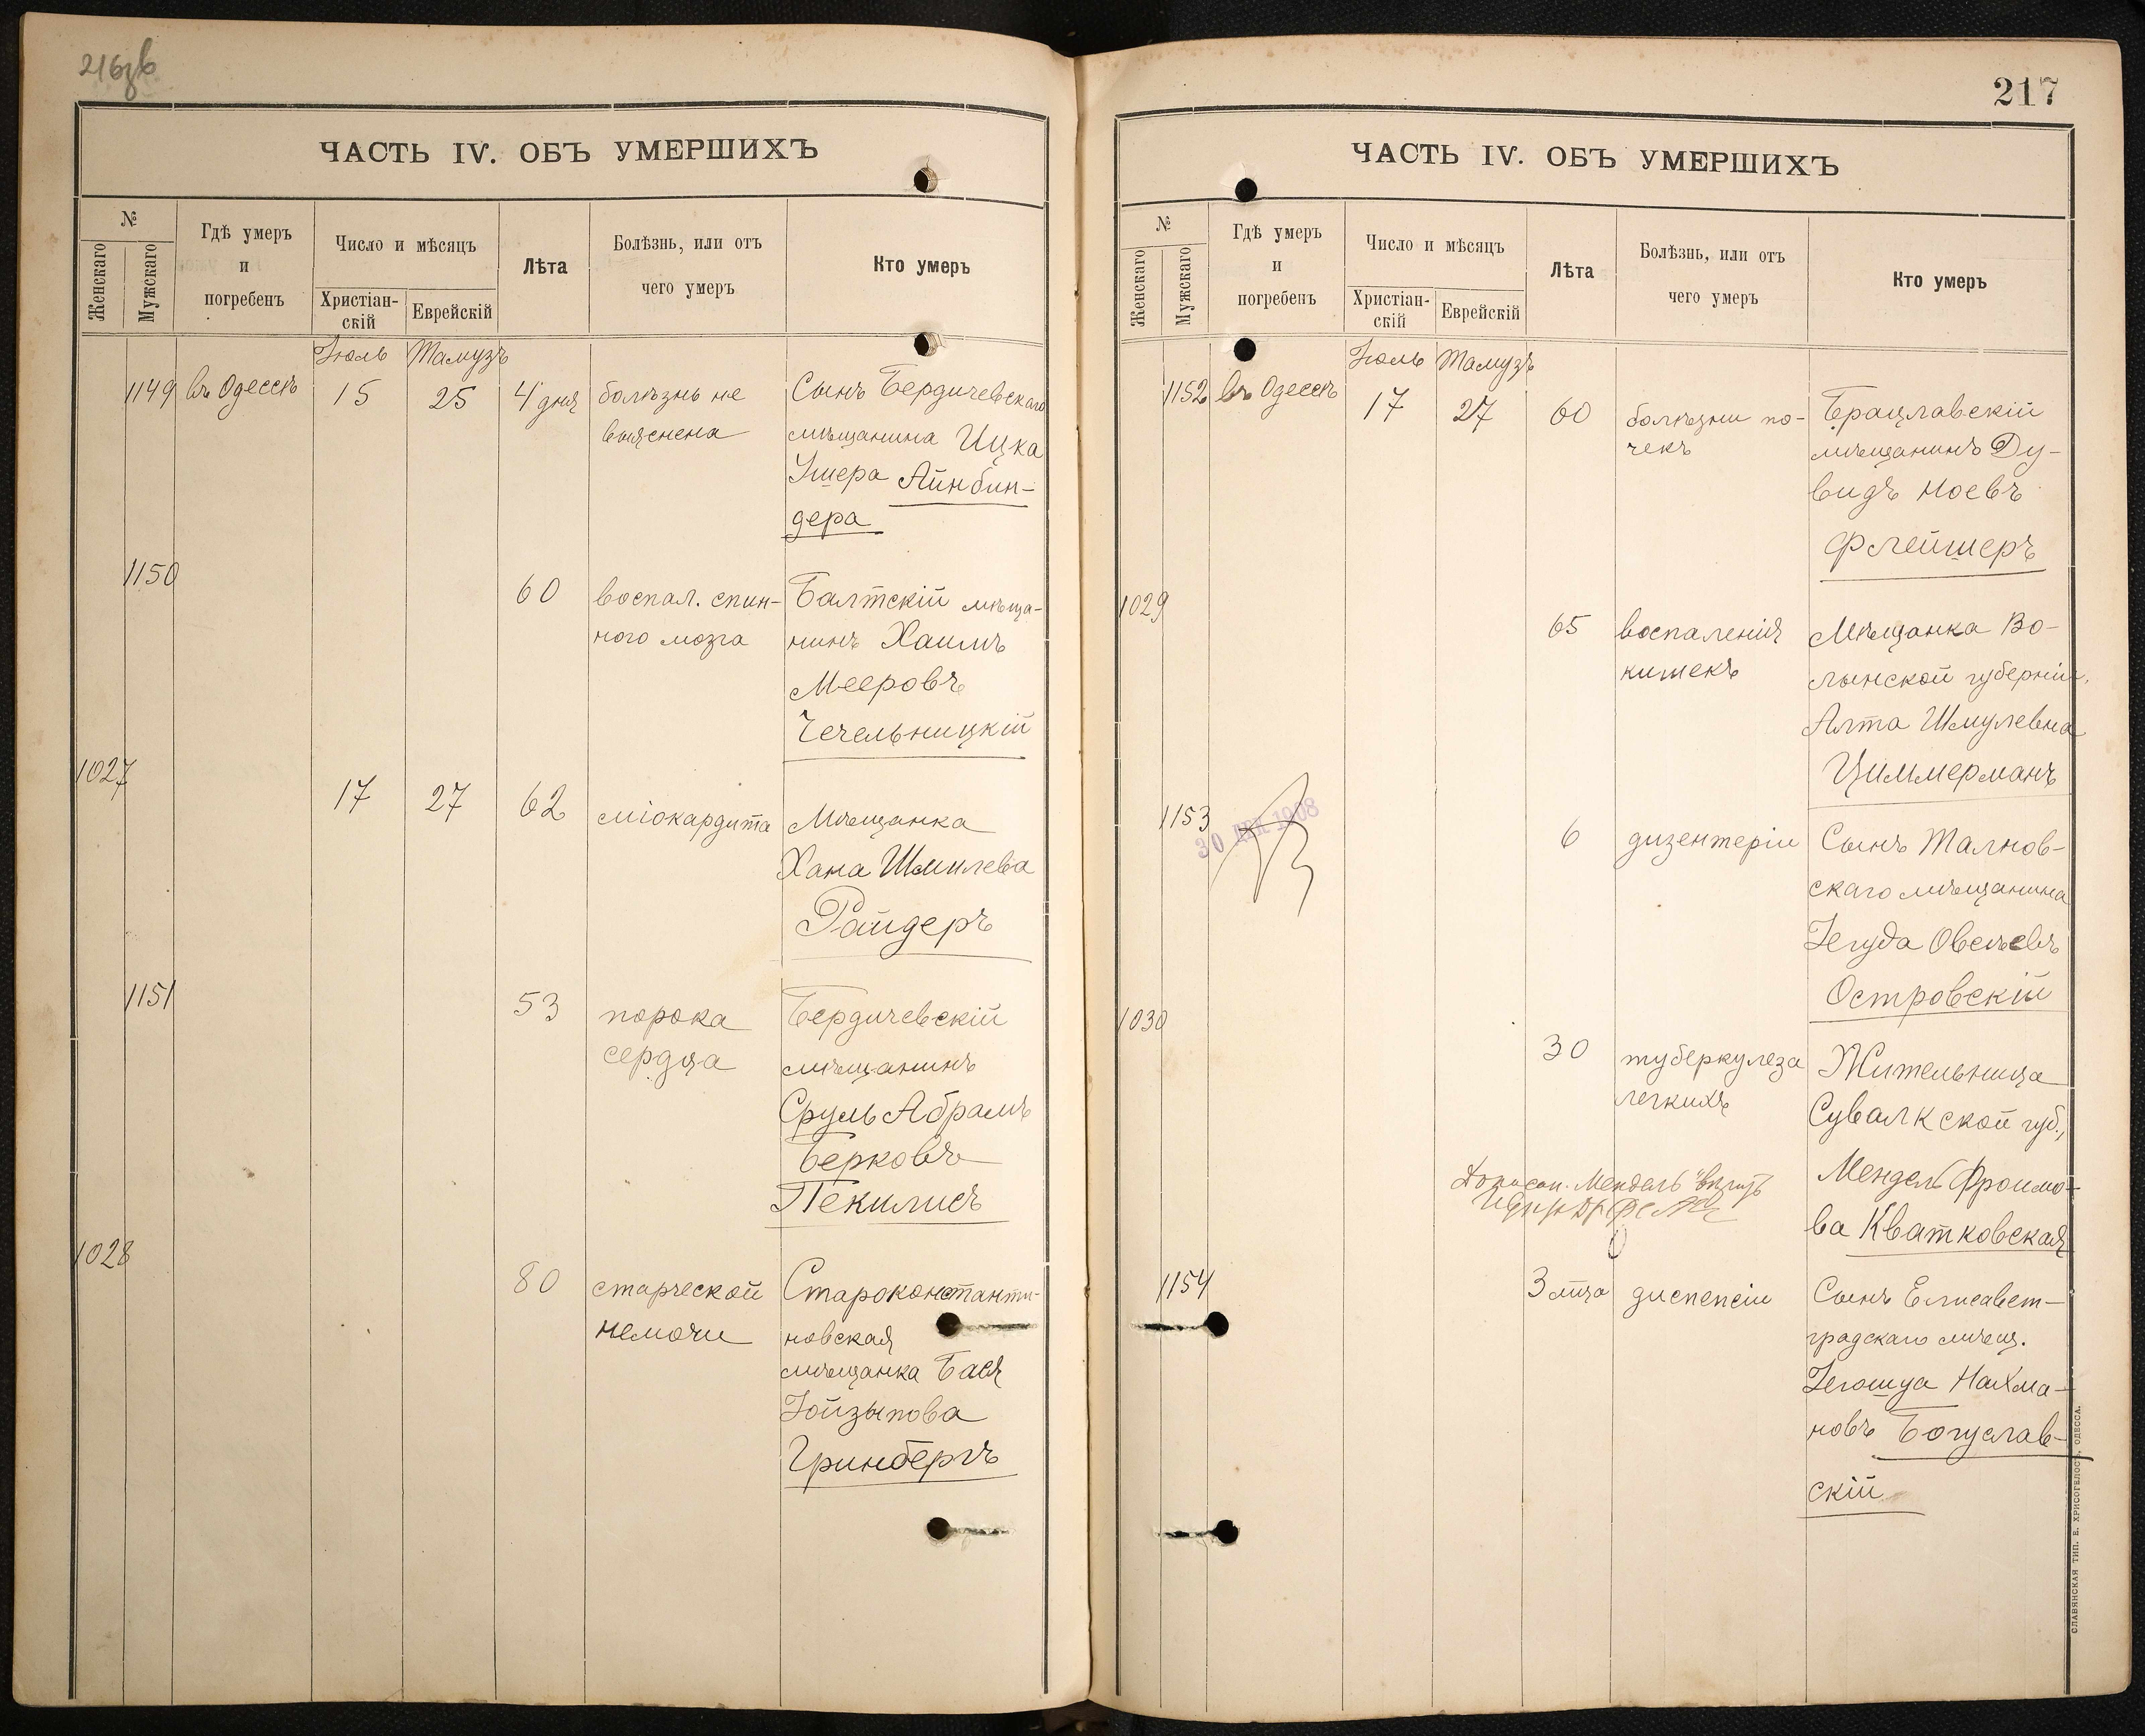 ЧАСТЬ IV. ОБЪ УМЕРШИХЪ
№
Женскаго
Мужскаго
Гдѣ умеръ
и
погребенъ
Число и мѣсяцъ
Христіан-
скій
Еврейскій
Лѣта
Болѣзнь, или отъ
чего умеръ
Кто умеръ
Іюль Тамузъ
1149 въ Одессѣ 15 25 4 дня болѣзнь не Сынъ Бердичевскаго
выяснена мѣщанина Ицка
Ушера Айнбин-
дера
1150
60 воспал. спин- Балтскій мѣща-
ного мозга нинъ Хаимъ
Мееровъ
Чечельницкій
1027
17 27 62 міокардита Мѣщанка
Хана Шмилева
Райдеръ
1151
53 порока Бердичевскій
сердца мѣщанинъ
Сруль Абрамъ
Берковъ
Пекилисъ
1028
80 старческой Староконстанти-
немочи новская
мѣщанка Бася
Іойзыпова
Гринбергъ
217
ЧАСТЬ IV. ОБЪ УМЕРШИХЪ
№
Женскаго
Мужскаго
Гдѣ умеръ
и
погребенъ
Число и мѣсяцъ
Христіан-
скій
Еврейскій
Лѣта
Болѣзнь, или отъ
чего умеръ
Кто умеръ
Іюль Тамузъ
1152 въ Одессѣ 17 27 60 болѣзни по- Брацлавскій
чекъ мѣщанинъ Ду-
видъ Ноевъ
Флейшеръ
1029
65 воспаленія Мѣщанка Во-
кишекъ лынской губерніи,
Алта Шмулевна
Циммерманъ
1153
30 ДЕК 1908
6 дизентеріи Сынъ Талнов-
скаго мѣщанина
Іегуда Овсѣевъ
Островскій
1030
30 туберкулеза Жительница
легкихъ Сувалкской губ.,
Мендель Фроимо-
ва Кватковская
Мендель
1154
3 мѣса диспепсіи Сынъ Елисавет-
градскаго мѣщ.
Іегошуа Нахма-
новъ Богуслав-
скій
СЛАВЯНСКАЯ ТИП. Е. ХРИСОГЕЛОСЪ, ОДЕССА.